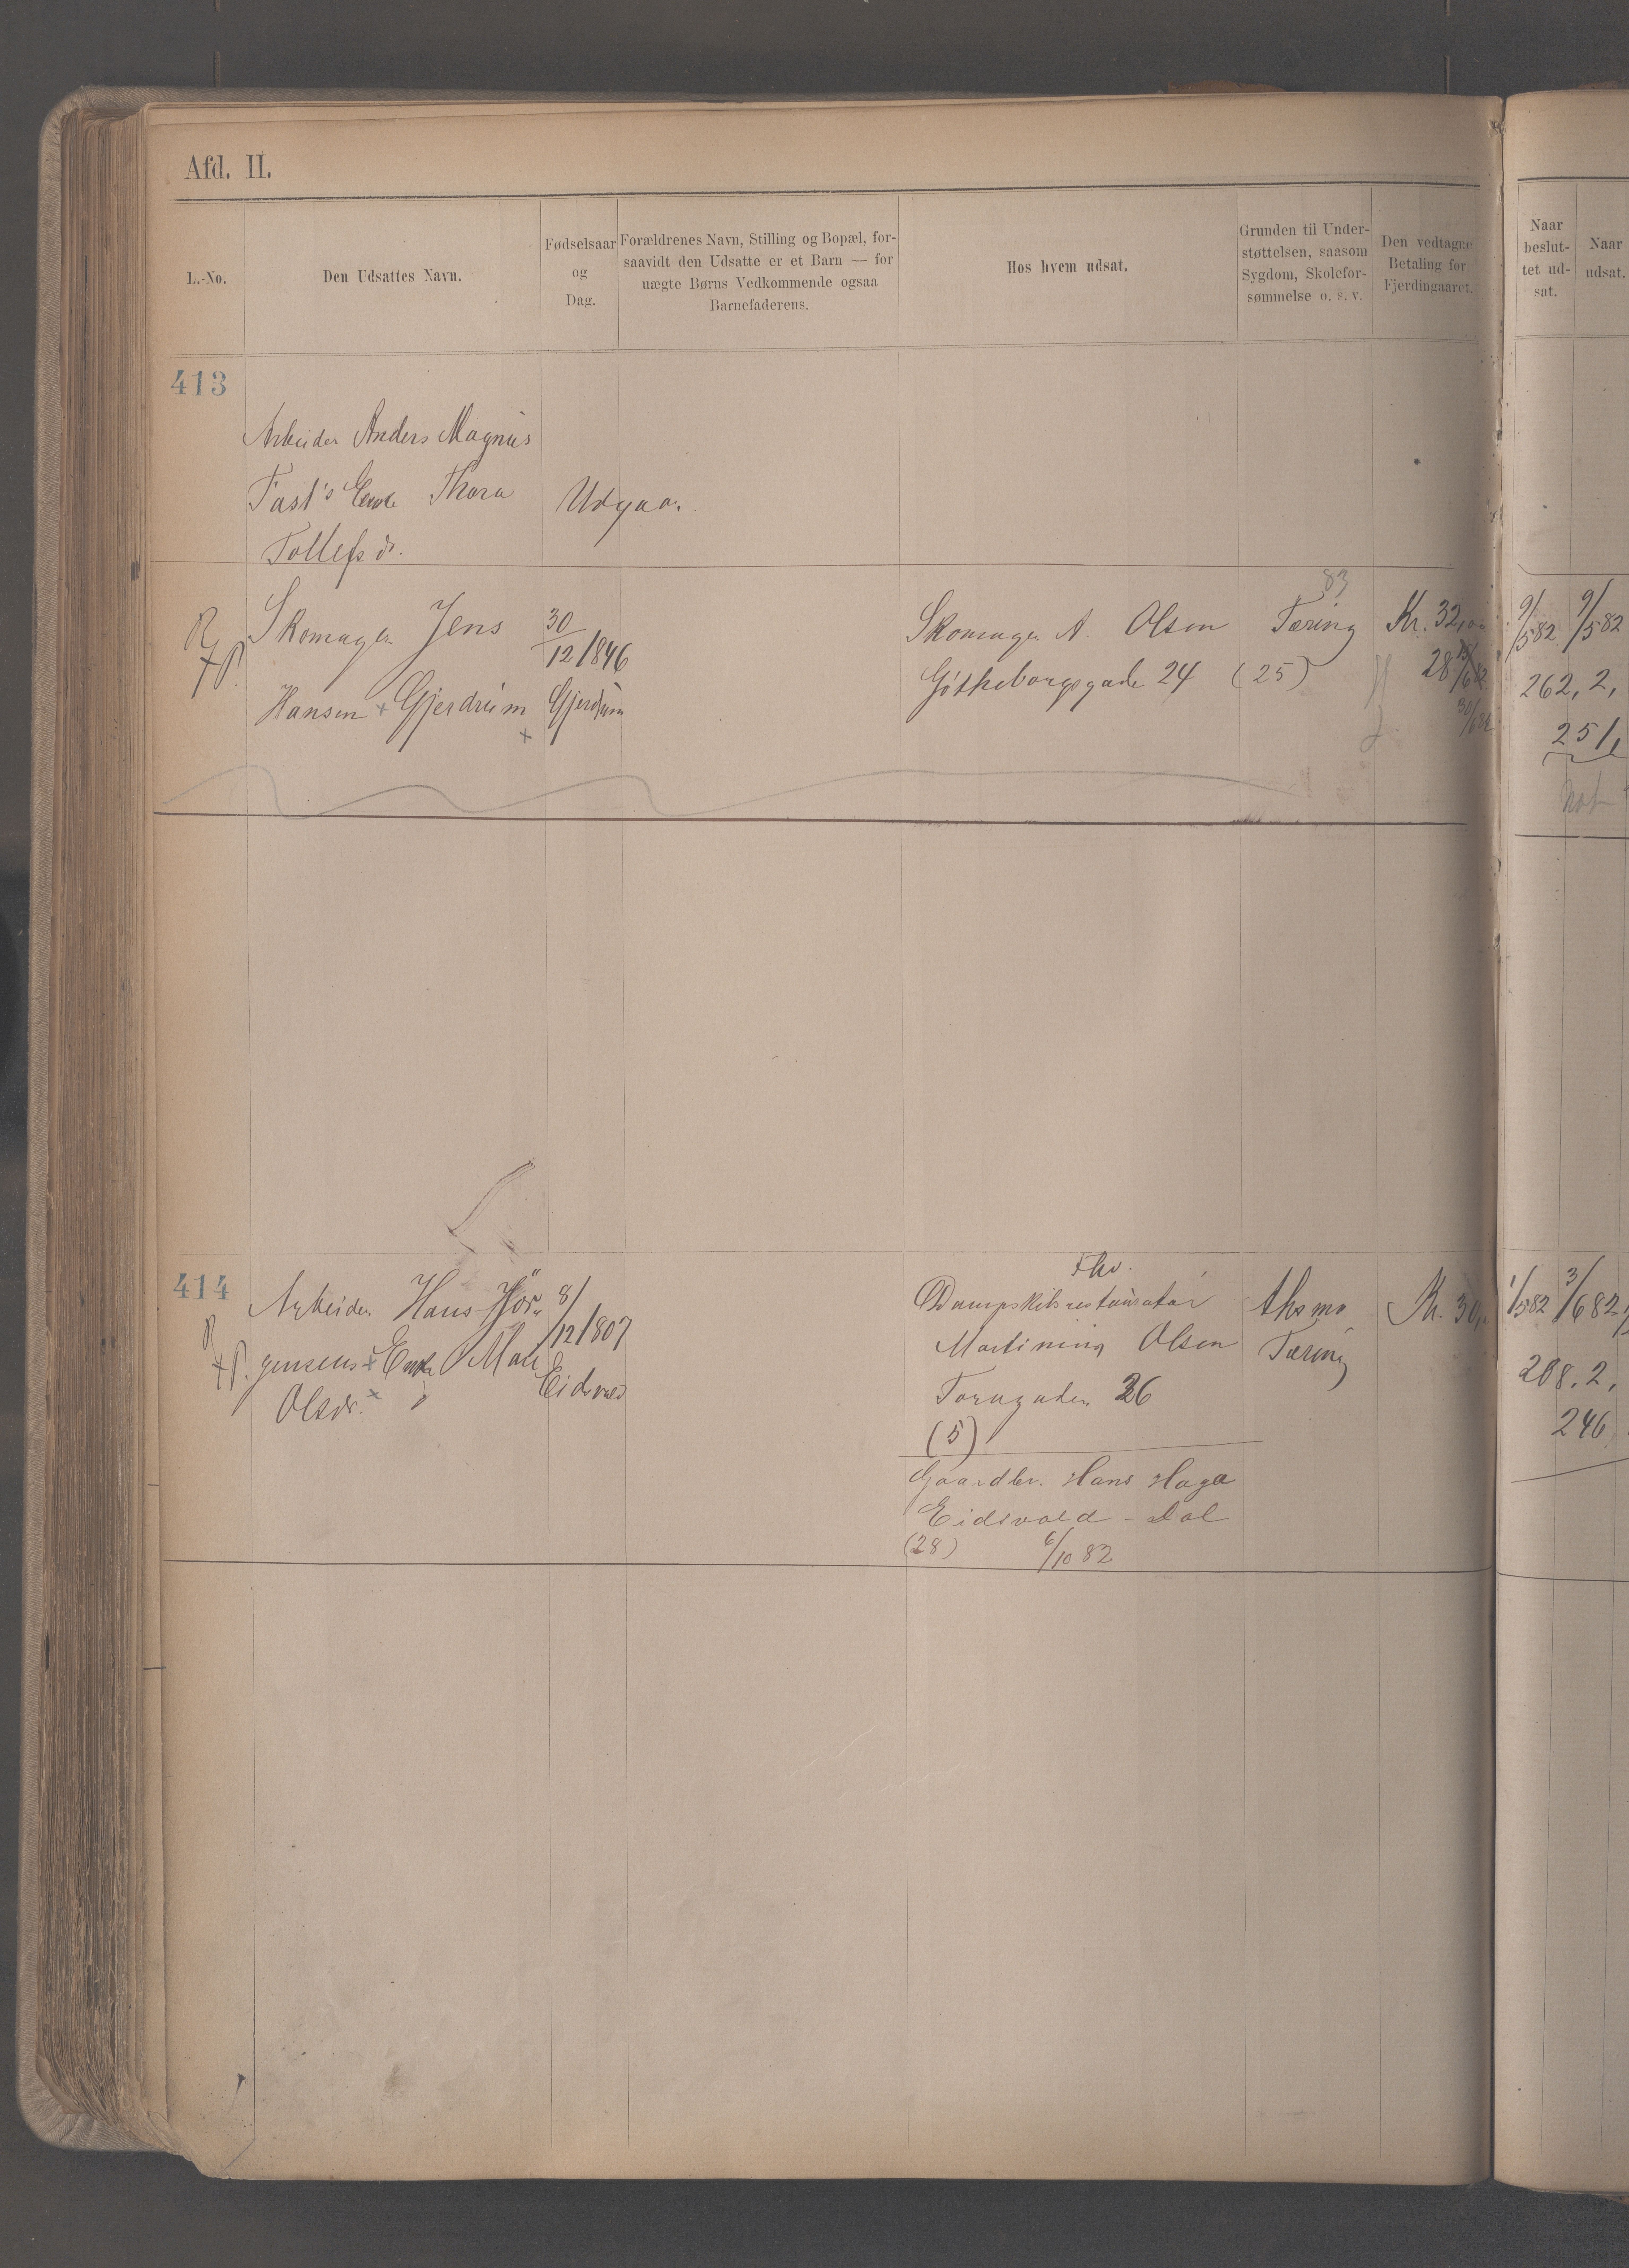 Afd. II.
L.-No.
Den Udsattes Navn.
Fødselsaar
og
Dag.
Forældrenes Navn, Stilling og Bopæl, for-
saavidt den Udsatte er et Barn — for
uægte Børns Vedkommende ogsaa
Barnefaderens.
Hos hvem udsat.
Grunden til Under-
støttelsen, saasom
Sygdom, Skolefor-
sømmelse o. s. v.
Den vedtagne
Betaling for
Fjerdingaaret.
Naar
beslut-
tet ud-
sat.
Naar
udsat.
413
Arbeider Anders Magnus
Fast's Enke Thora
Tollefsdr.
Udgaar.
Skomager Jens
Hansen + Gjerdrum
+
30
/12 1846
Gjerdrum
Skomager A. Olsen
Götheborgsgade 24 (25)
83
Tæring
Kr. 32,00
28 
30/6 82
9/5 82
9/5 82
262, 2,
251,
414
Arbeider Hans Jör-
gensens + Enke Mari
Olsdr. +
8/
/12 1807
Eidsvold
Fhv.
Dampskibsrestauratør
Martinius Olsen
Torvgaden 26
(5)
Gaardbr. Hans Haga
Eidsvold - Dal
(28) 6/10 82
Athsma
Tæring
Kr. 30,
1/5 82
3/6 82
208. 2,
246